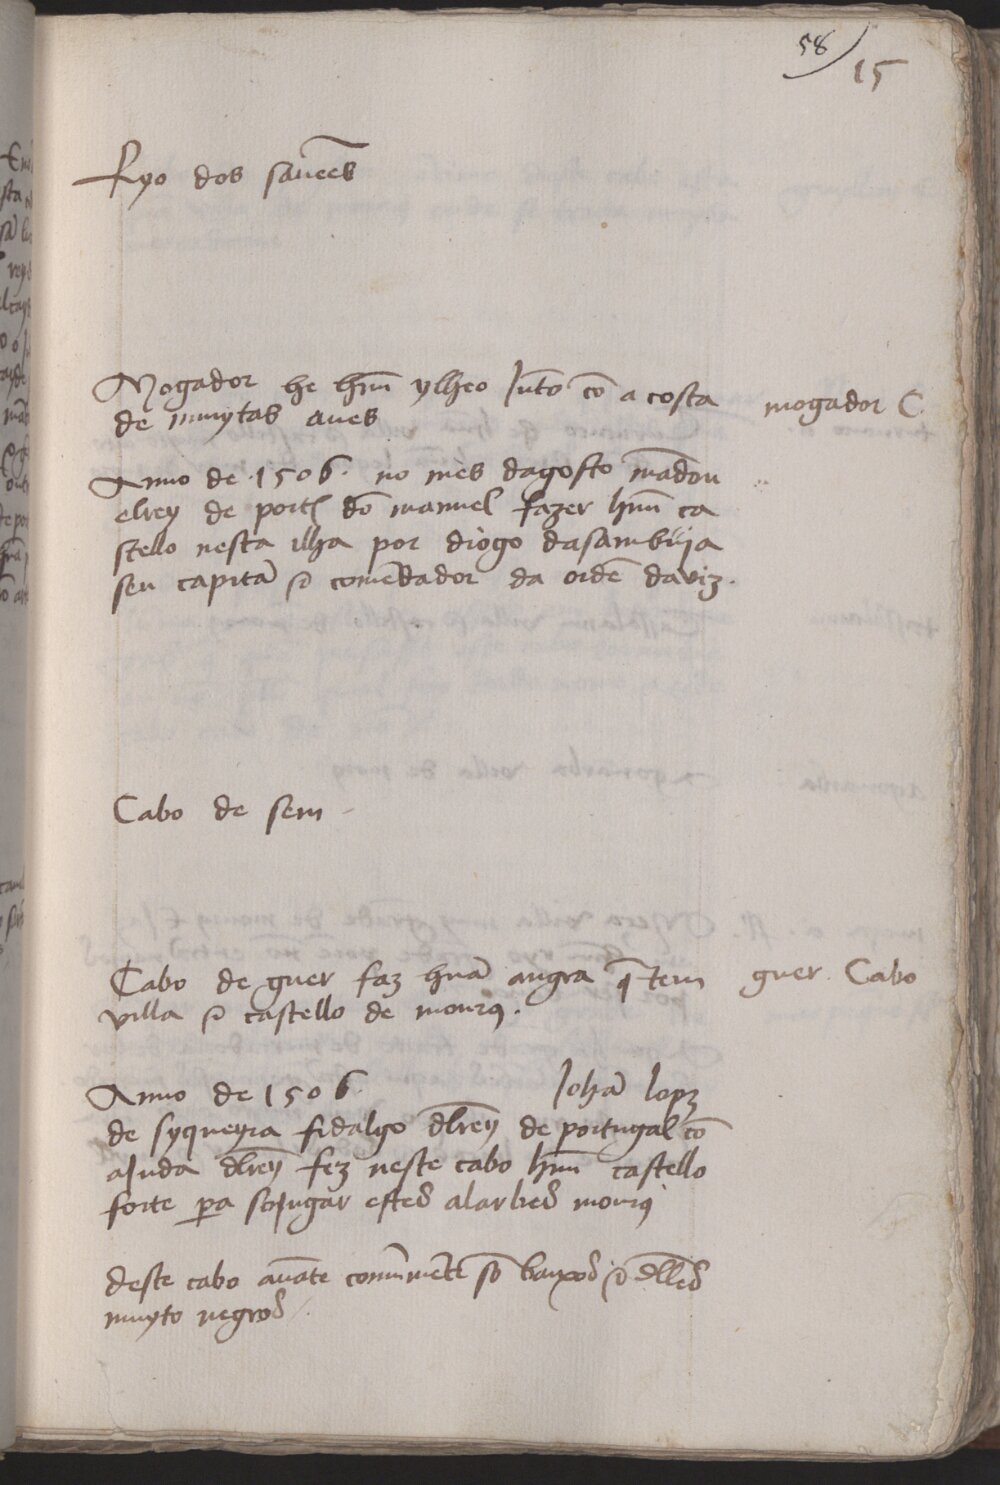 58
15
Ryo dos saueẽs
Mogador he hũm ylheo Jũto cõ a costa
mogador C.
de muytas aues
Anno de .1506. no mes dagosto mãdou
elrey de portl dõ manuel fazer hũm ca
stello nesta ilha por diogo dasambuja
seu capitã & comẽdador da ordẽ daviz.
Cabo de sem
Cabo de guer faz huã angra q̃ tem
guer Cabo
villa & castello de mouros.
Anno de 1506. Johã lopz
de syqueyra fidalgo dlrey de portugal cõ
aJuda dlrey fez neste cabo hũm castello
forte pa soJugar estes alarues mouros
deste cabo auãte comũmẽte sõ baxos & dlles
muyto negros